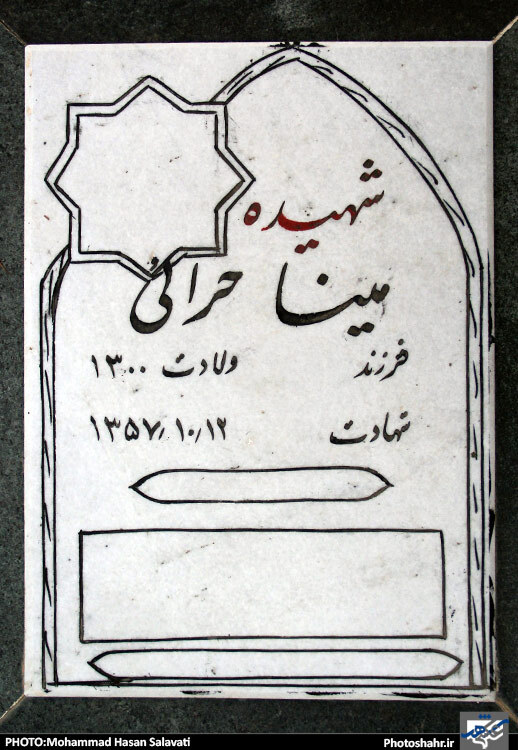 شهیده
مینا حرائی
فرزند ولادت ۱۳۰۰
شهادت ۱۳۵۷٫۱۰٫۱۲
PHOTO:Mohammad Hasan Salavati
Photoshahr.ir